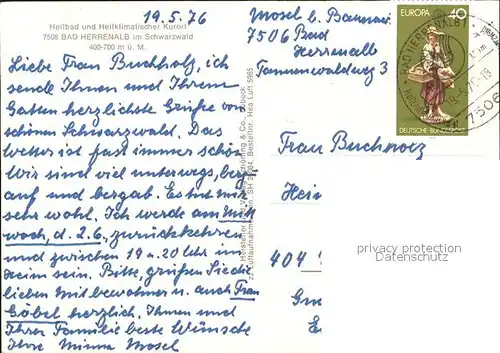 19.5.76
Heilbad und Heilklimatischer Kurort
7506 BAD HERRENALB im Schwarzwald
400-700 m ü. M.
Liebe Frau Buchholz, ich
sende Ihnen und Ihrem
Gatten herzlichste Grüße vom
schönen Schwarzwald. Das
Wetter ist fast immer schön.
Wir sind viel unterwegs, berg-
auf und bergab. Es tut mir
sehr wohl. Ich werde am Mitt
woch, d. 2.6. zurückkehren
und zwischen 19 u. 20 Uhr im
Heim sein. Bitte, grüßen Sie die
lieben Mitbewohner u. auch Frau
Göbel herzlich. Ihnen und
Ihrer Familie beste Wünsche
Ihre Minna Mosel
Mosel b.
7506 Bad
Herrenalb
Tannenwaldweg 3
EUROPA 40
DEUTSCHE BUNDESPOST
7506
Frau Buchholz
Hei
404
Gm
E
privacy protection
Datenschutz